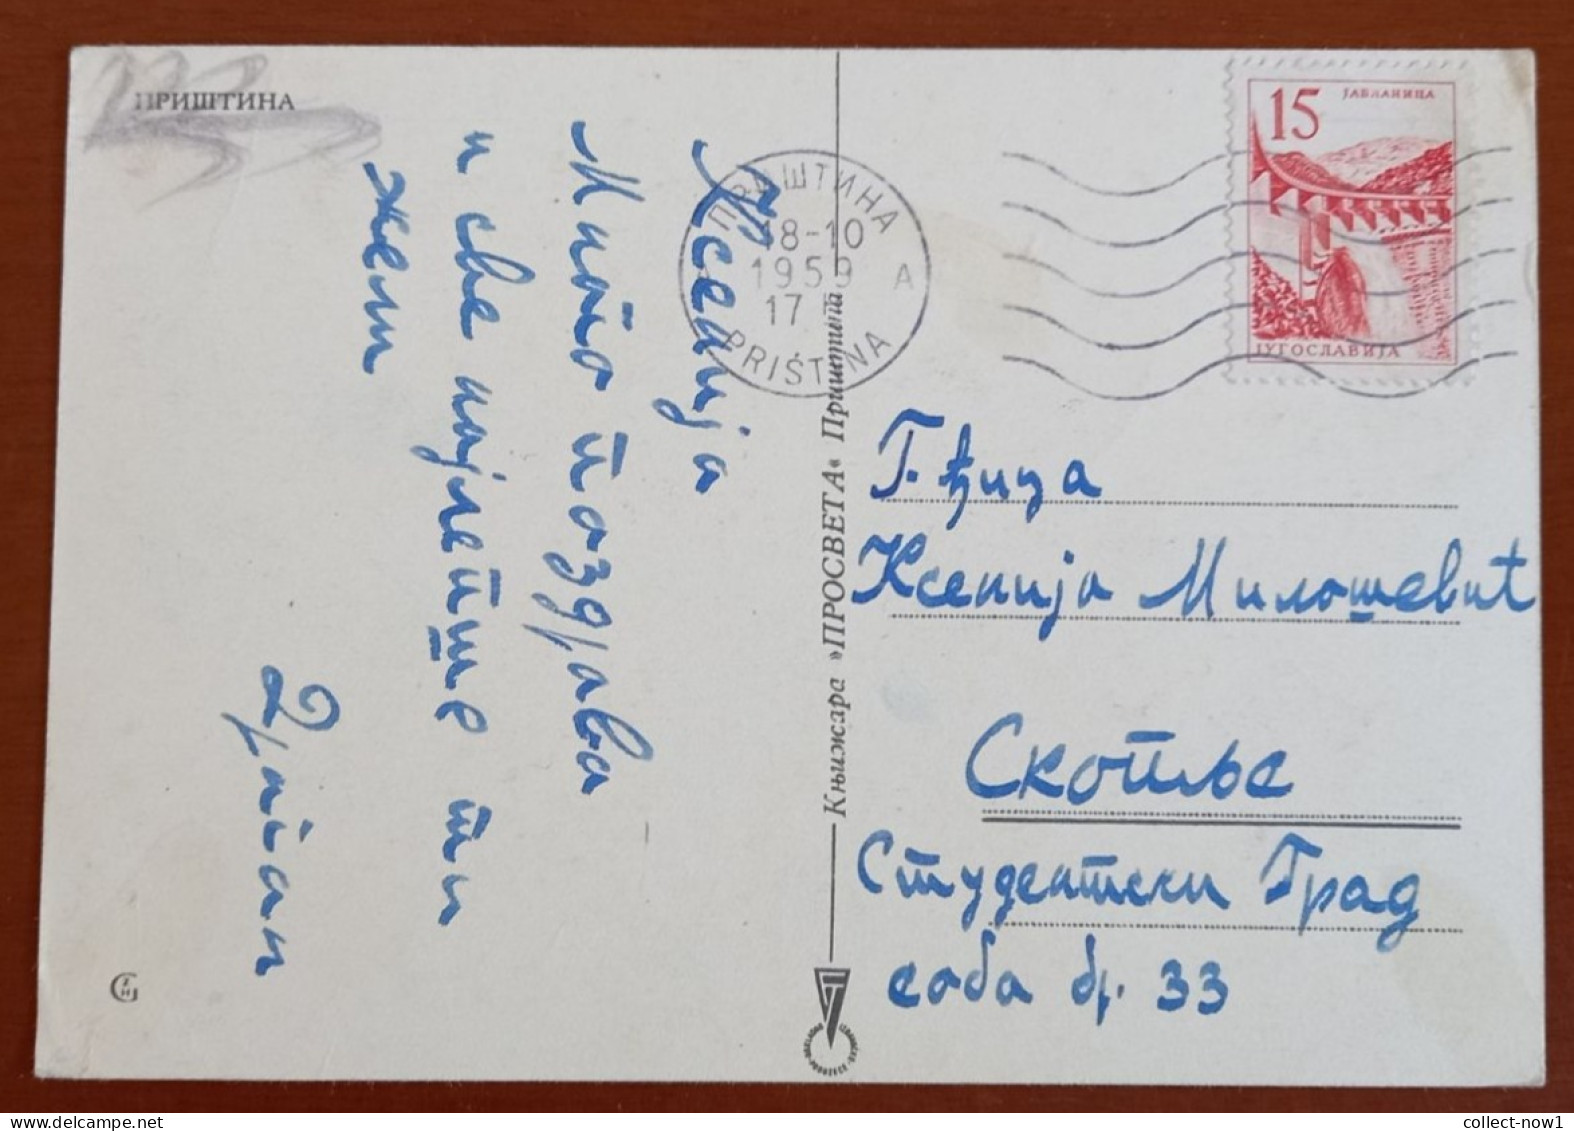 ПРИШТИНА
Ксенија
Много поздрава
и све најлепше ти
жели
Књижара »ПРОСВЕТА« Приштина
ПРИШТИНА
18-10
1959
17
A
PRIŠTINA
15
ЈАБЛАНИЦА
ЈУГОСЛАВИЈА
Г-ђица
Ксенија Милошевић
Скопље
Студентски Град
соба бр. 33
collect-now1